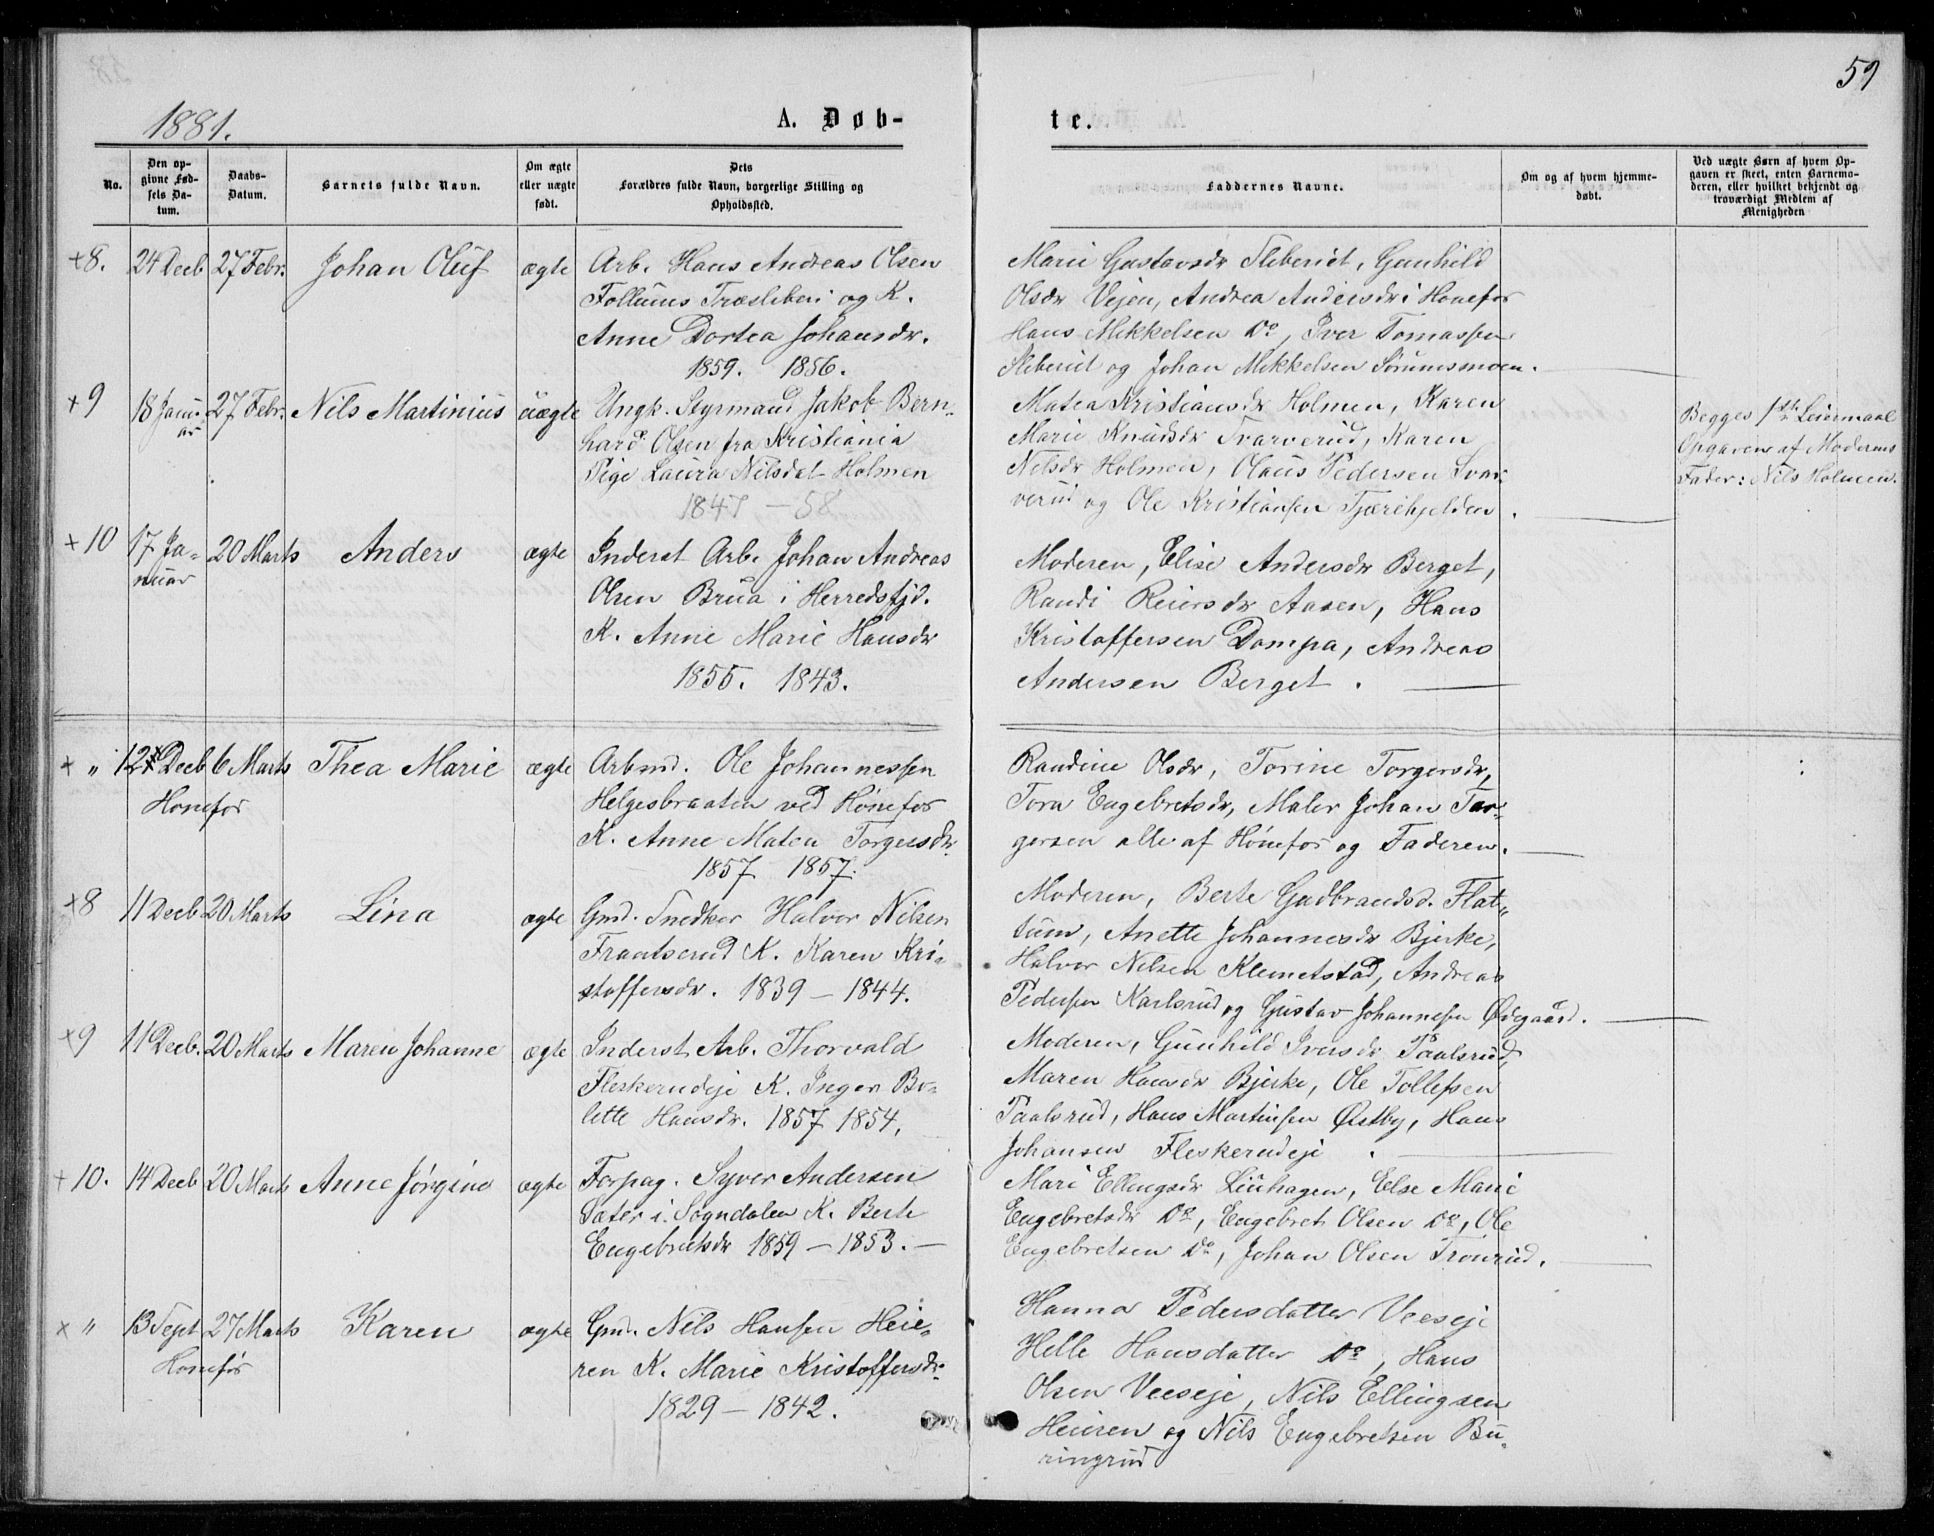 59
1881.
A. Døb-
te.
No.
Den op-
givne Fød-
sels Da-
tum.
Daabs-
Datum.
Barnets fulde Navn.
Om ægte
eller uægte
født.
Dets
Forældres fulde Navn, borgerlige Stilling og
Opholdssted.
Faddernes Navne.
Om og af hvem hjemme-
døbt.
Ved uægte Børn af hvem Op-
gaven er skeet, enten Barnemo-
deren, eller hvilket bekjendt og
troværdigt Medlem af
Menigheden
+8. 24 Decb 27 Febr. Johan Oluf ægte
Arb. Hans Andreas Olsen
Follums Træsliberi og K.
Anne Dortea Johansdr.
1859. 1856.
Marie Gustavsdr Sliberiet, Gunhild
Olsdr Vejen, Andrea Andersdr i Honefos
Hans Mikkelsen Do, Iver Tomassen
Sliberiet og Johan Mikkelsen Sørumsmoen.
+9 18 Janu-
ar 27 Febr. Nils Martinius uægte
Ungk. Styrmand Jakob Bern-
hard Olsen fra Kristiania
Pige Laura Nilsdat Holmen
1847 - 58
Matea Kristiansdr Holmen, Karen
Marie Knudsdr Svarverud, Karen
Nilsdr Holmen, Olaus Pedersen Svar-
verud og Ole Kristiansen Tjærehjelden.
Begges 1ste Leiermaal
Opgaven af Moderens
Fader: Nils Holmen.
+10 17 Ja-
nuar 20 Marts Anders ægte
Inderst Arb. Johan Andreas
Olsen Brua i Herredsfjd.
K. Anne Marie Hansdr
1855. 1843.
Moderen, Elise Andersdr Berget,
Randi Reiersdr Aasen, Hans
Kristoffersen Dompa, Andreas
Andersen Berget.
+ " 12 Decb 6 Marts Thea Marie ægte
Honefos
Arbmd. Ole Johannessen
Helgesbraaten ved Hønefos
K. Anne Matea Torgersdr
1857 1857.
Randine Olsdr, Torine Torgersdr,
Tora Engebretsdr, Maler Johan Tor-
gersen alle af Hønefos og Faderen.
+8 11 Decb 20 Marts Lina ægte
Gmd. Snedker Halvor Nilsen
Frantserud K. Karen Kri-
stoffersdr. 1839 - 1844.
Moderen, Berte Gudbrandsd. Flat-
tum, Anette Johannesdr Bjerke,
Halvor Nilsen Klemetstad, Andreas
Pedersen Karlsrud og Gustav Johannesen Ødegaard.
+9 11 Decb. 20 Marts Maren Johanne ægte
Inderst Arb. Thorvald
Fleskerudeje K. Inger Bo-
lette Hansdr. 1857 1854.
Moderen, Gunhild Iversdr Paalsrud,
Maren Hansdr Bjerke, Ole Tollefsen
Paalsrud, Hans Martinsen Østby, Hans
Johansen Fleskerudeje.
+10. 14 Decb 20 Marts Anne Jørgine ægte
Forpag. Syver Andersen
Sæter i Sogndalen K. Berte
Engebretsdr 1859 - 1853. -
Mari Ellingsdr Liuhagen, Else Marie
Engebretsdr Do, Engebret Olsen Do, Ole
Engebretsen Do, Johan Olsen Tronrud.
x " 13 Sept 27 Marts Karen ægte
Honefos
Gmd. Nils Hansen Heie-
ren K. Marie Kristoffersdr.
1829 - 1842.
Hanna Pedersdatter Veeseje
Helle Hansdatter Do, Hans
Olsen Veeseje, Nils Ellingsen
Heieren og Nils Engebretsen Bu-
ringrud